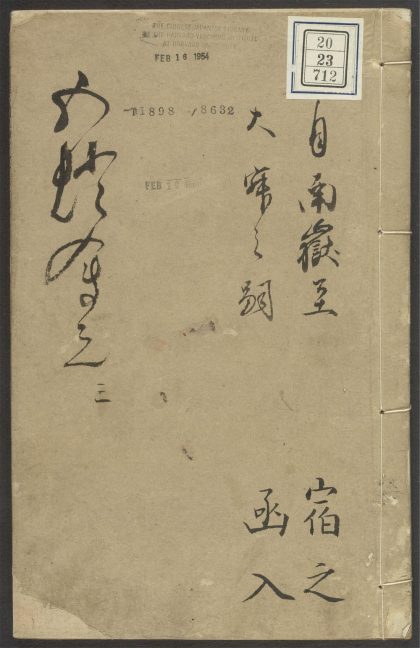 THE CHINESE-JAPANESE LIBRARY
OF THE HARVARD-YENCHING INSTITUTE
AT HARVARD
FEB 16 1954
20
23
712
T1898 /8632
FEB
自南嶽至
大寧之嗣
宿之
函入
五燈會元 三